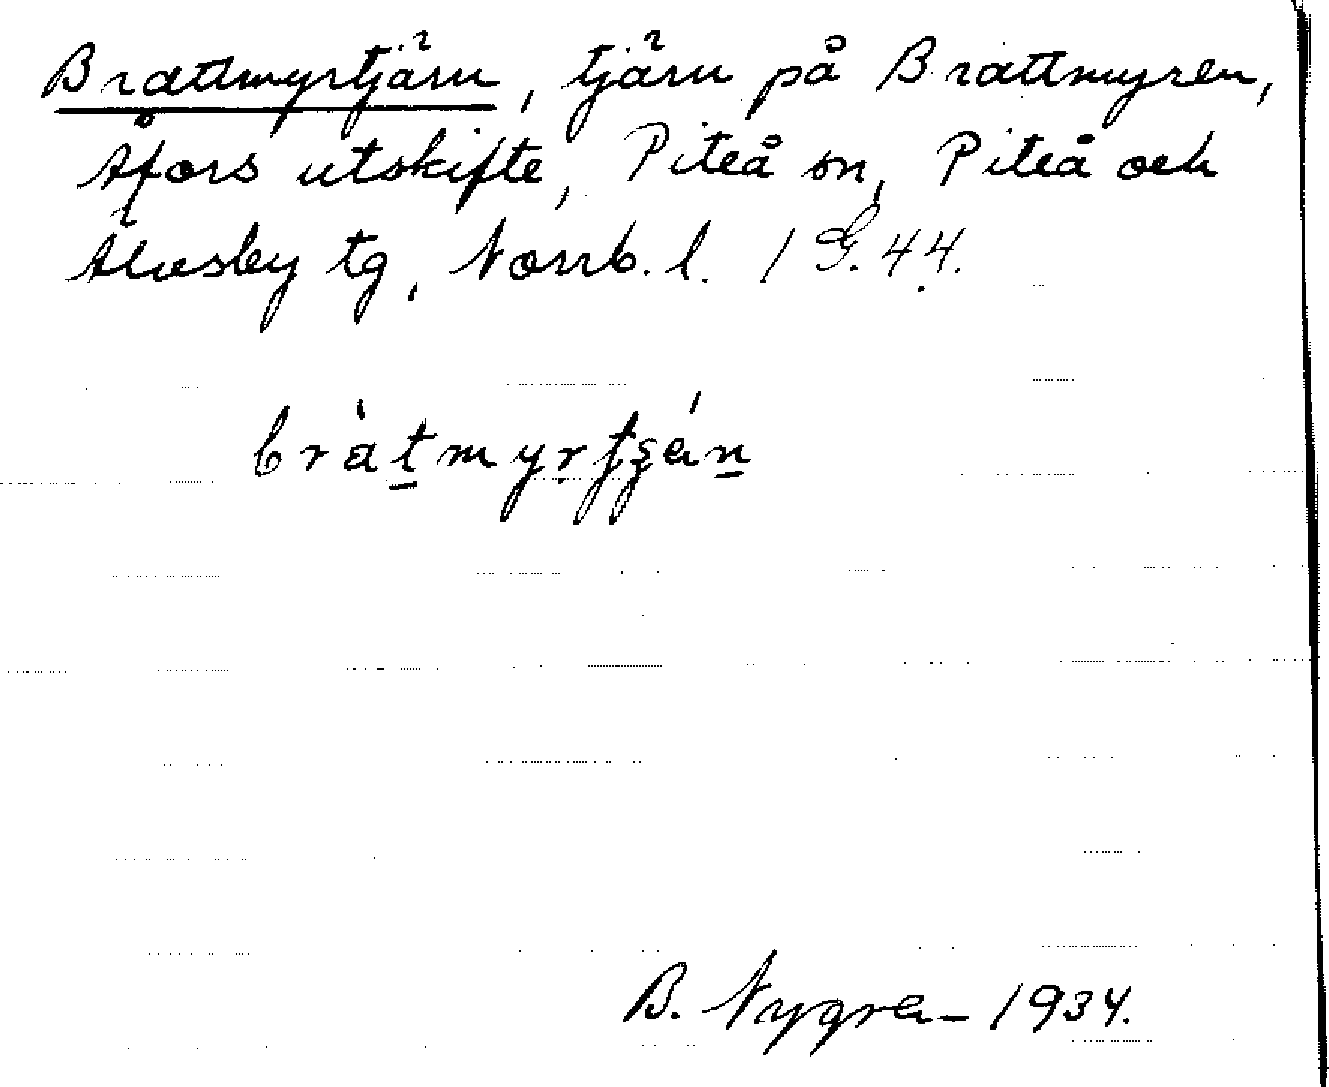 Brattmyrtjärn, tjärn på Brattmyren,
Åfors utskifte, Piteå sn, Piteå och
Älvsby tg, Norrb. l. 1 G. 44.
B. Nygren 1934.